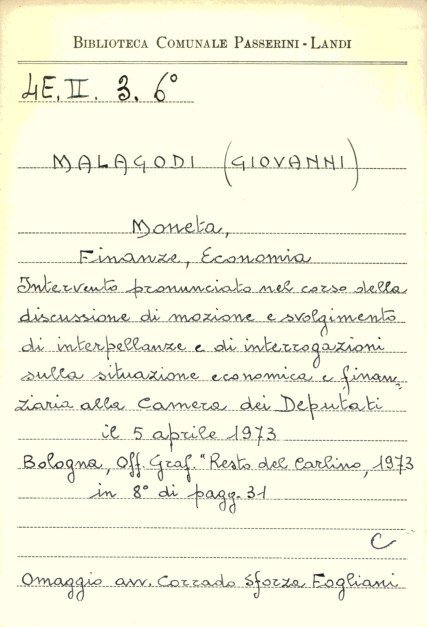 BIBLIOTECA COMUNALE PASSERINI - LANDI
4E. II. 3. 6°
MALAGODI (GIOVANNI)
Moneta,
Finanze, Economia
Intervento pronunciato nel corso della
discussione di mozione e svolgimento
di interpellanze e di interrogazioni
sulla situazione economica e finan=
ziaria alla Camera dei Deputati
il 5 aprile 1973
Bologna, Off. Graf. "Resto del Carlino, 1973
in 8° di pagg. 31
C
Omaggio avv. Corrado Sforza Fogliani